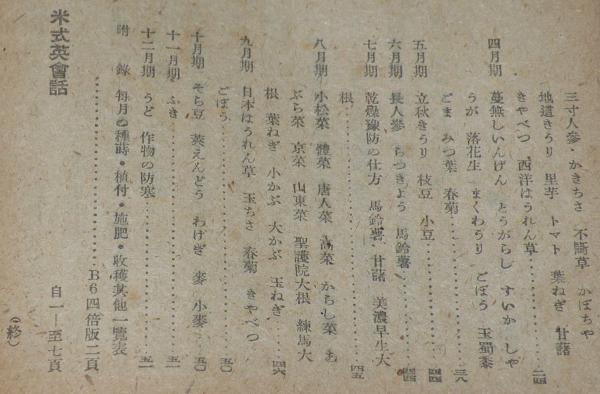 三寸人參 かきちさ 不斷草 かぼちや
地這きうり 里芋 トマト 葉ねぎ 甘藷
きやべつ 西洋はうれん草……二四
四月期 蔓無しいんげん とうがらし すいか しや
うが 落花生 まくわうり ごぼう 玉蜀黍
ごま みつ葉 春菊……三八
五月期 立秋きうり 枝豆 小豆……四四
六月期 長人參 らつきよう 馬鈴薯……四四
七月期 乾燥豫防の仕方 馬鈴薯 甘藷 美濃早生大
根……四五
八月期 小松菜 體菜 唐人菜 高菜 からし菜 も
ぶら菜 京菜 山東菜 聖護院大根 練馬大
根 葉ねぎ 小かぶ 大かぶ 玉ねぎ……四六
九月期 日本はうれん草 玉ちさ 春菊 きやべつ
ごぼう……五〇
十月期 そら豆 莢えんどう わけぎ 麥 小麥……五〇
十一月期 ふき……五一
十二月期 うど 作物の防寒……五一
附錄 每月の種蒔・植付・施肥・收穫其他一覽表
……B6四倍版二頁
米式英會話……自一―至七頁
(終)